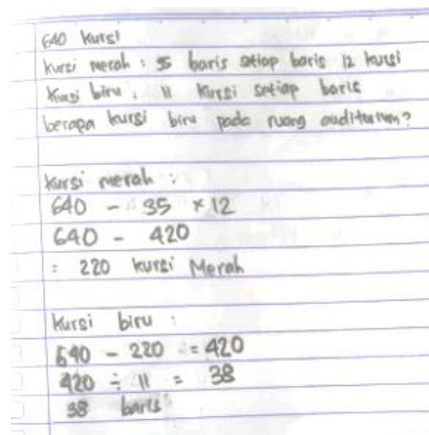 640 kursi
kursi merah : 35 baris setiap baris 12 kursi
kursi biru : 11 kursi setiap baris
berapa kursi biru pada ruang auditurium?
kursi merah :
640 - 35 × 12
640 - 420
= 220 kursi Merah
Kursi biru :
640 - 220 = 420
420 ÷ 11 = 38
38 baris